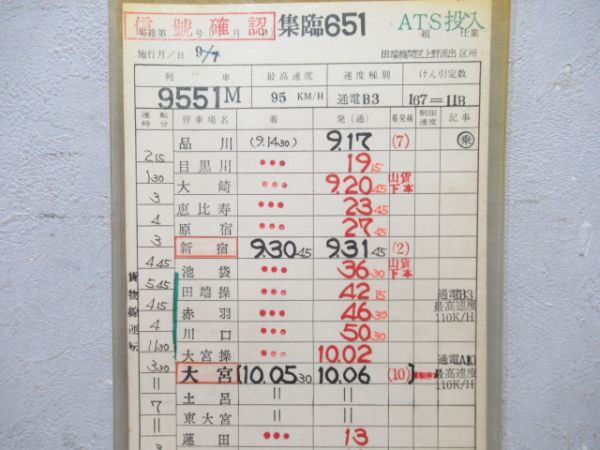 信號確認 集臨651 ATS投入
局達第 号 月 日 組 仕業
施行月/日 9/7 田端機関区上野派出区所
列車 最高速度 速度種別 けん引定数
9551M 95 KM/H 通電B3 167=11B
運転時分 停車場名 着 発(通) 着発線 制限速度 記事
品川 (9.14 30) 9.17 (7) 乗
2 15
目黒川 ••• 19 15
1 30
大崎 ••• 9.20 45 山貨下本
3
恵比寿 ••• 23 45
4
原宿 ••• 27 45
3
新宿 9.30 45 9.31 45 (2)
4 45
池袋 ••• 36 30 山貨下本
5 45
田端操 ••• 42 15 通電B3
4 15 最高速度
赤羽 ••• 46 30 110K/H
4
川口 ••• 50 30
11 30
大宮操 ••• 10.02 通電A10
3 30 最高速度
大宮 (10.05 30) 10.06 (10) 110K/H
〃
土呂 〃 〃
7
東大宮 〃 〃
〃
蓮田 ••• 13
貨物線運転
3